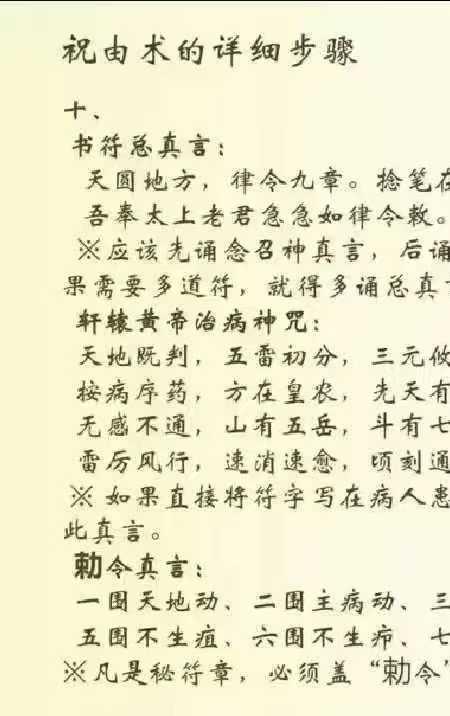 祝由术的详细步骤
十、
书符总真言：
天圆地方，律令九章。捻笔在
吾奉太上老君急急如律令敕。
※应该先诵念召神真言，后诵
果需要多道符，就得多诵总真
轩辕黄帝治病神咒：
天地既判，五雷初分，三元攸
按病序药，方在皇农，先天有
无感不通，山有五岳，斗有七
雷厉风行，速消速愈，顷刻通
※ 如果直接将符字写在病人患
此真言。
勅令真言：
一围天地动、二围主病动、三
五围不生疽、六围不生疖、七
※凡是秘符章，必须盖“勅令”